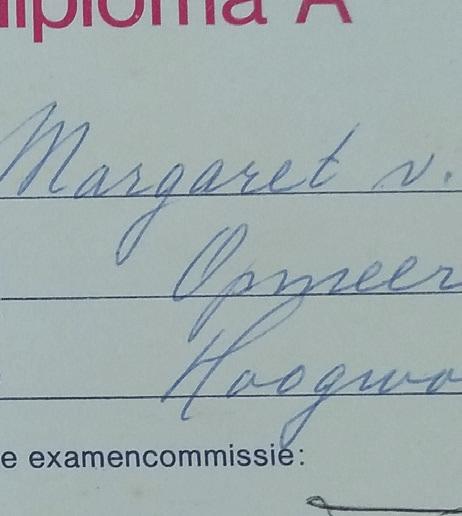 diploma A
Margaret v.
Opmeer
Hoogwo
e examencommissie: